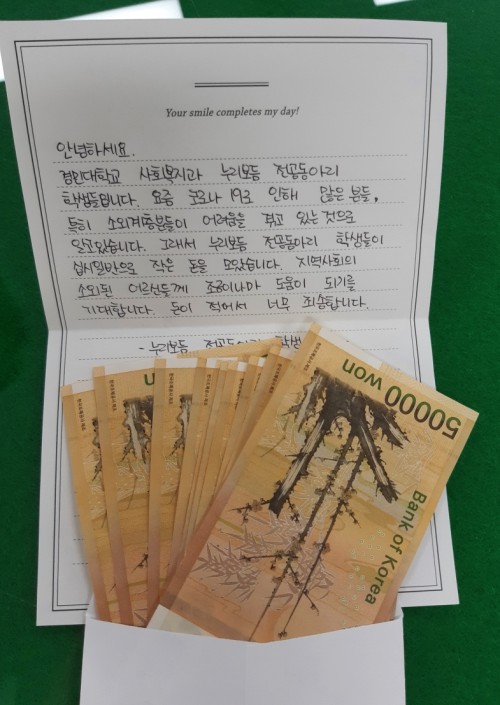 Your smile completes my day!
안녕하세요.
사회복지과 누리보듬 전공동아리
학생들입니다. 요즘 코로나 19로 인해 많은 분들,
특히 소외계층분들이 어려움을 겪고 있는 것으로
알고있습니다. 그래서 누리보듬 전공동아리 학생들이
십시일반으로 작은 돈을 모았습니다. 지역사회의
소외된 어르신들께 조금이나마 도움이 되기를
기대합니다. 돈이 적어서 너무 죄송합니다.
- 누리보듬 전공동아리 학생
50000 won
Bank of Korea